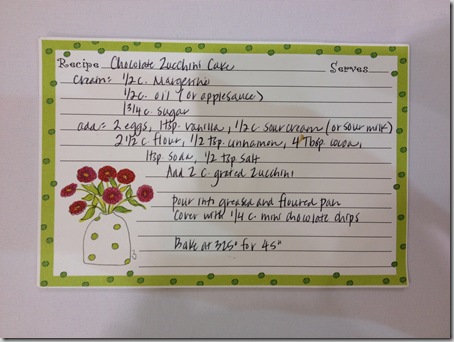 Recipe Chocolate Zucchini Cake Serves
Cream: 1/2 c. Margerine
1/2 c. oil (or applesauce)
1 3/4 c. sugar
add: 2 eggs, 1 tsp. vanilla, 1/2 c. sour cream (or sour milk)
2 1/2 c. flour, 1/2 tsp. cinnamon, 4 Tbsp. cocoa,
1 tsp. soda, 1/2 tsp salt
Add 2 c. grated zucchini
Pour into greased and floured pan
Cover with 1/4 c. mini chocolate chips
Bake at 325° for 45"